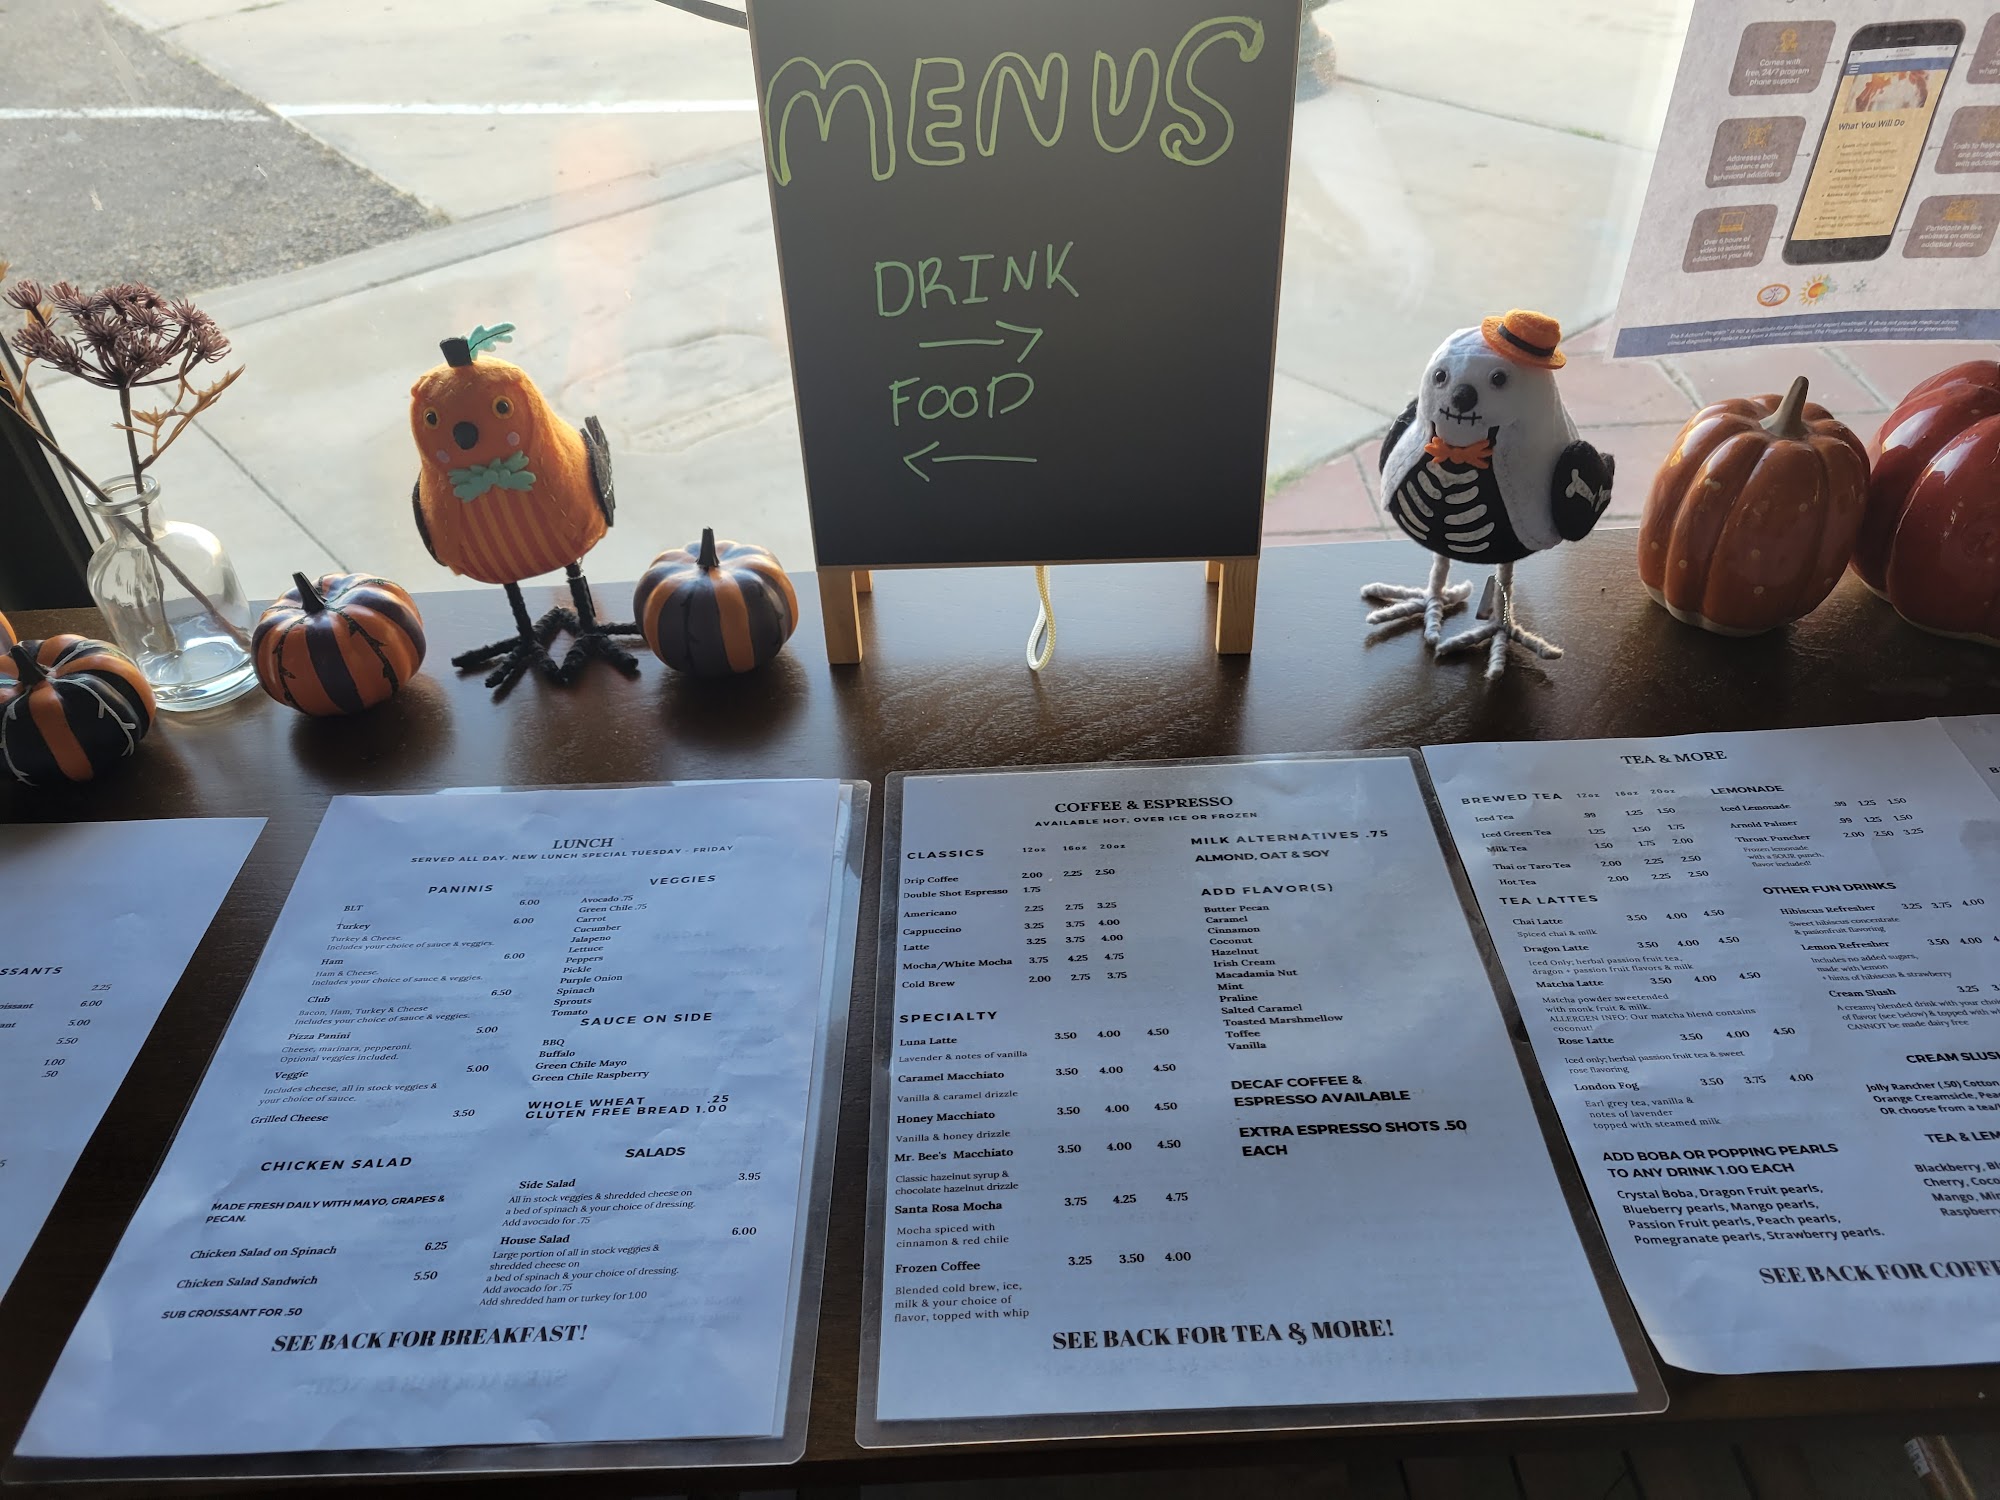 MENUS
DRINK
FOOD
Comes with
free, 24/7 program
phone support
Addresses both
substance and
behavioral addictions
Over 6 hours of
video to address
addiction in your life
What You Will Do
Participate in live
webinars on critical
addiction topics
SSANTS
2.25
oissant 6.00
ant 5.00
5.50
1.00
.50
LUNCH
SERVED ALL DAY. NEW LUNCH SPECIAL TUESDAY - FRIDAY
PANINIS
BLT 6.00
Turkey 6.00
Turkey & Cheese.
Includes your choice of sauce & veggies.
Ham 6.00
Ham & Cheese.
Includes your choice of sauce & veggies.
Club 6.50
Bacon, Ham, Turkey & Cheese
Includes your choice of sauce & veggies.
Pizza Panini 5.00
Cheese, marinara, pepperoni.
Optional veggies included.
Veggie 5.00
Includes cheese, all in stock veggies &
your choice of sauce.
Grilled Cheese 3.50
CHICKEN SALAD
MADE FRESH DAILY WITH MAYO, GRAPES &
PECAN.
Chicken Salad on Spinach 6.25
Chicken Salad Sandwich 5.50
SUB CROISSANT FOR .50
VEGGIES
Avocado .75
Green Chile .75
Carrot
Cucumber
Jalapeno
Lettuce
Peppers
Pickle
Purple Onion
Spinach
Sprouts
Tomato
SAUCE ON SIDE
BBQ
Buffalo
Green Chile Mayo
Green Chile Raspberry
WHOLE WHEAT .25
GLUTEN FREE BREAD 1.00
SALADS
Side Salad 3.95
All in stock veggies & shredded cheese on
a bed of spinach & your choice of dressing.
Add avocado for .75
House Salad 6.00
Large portion of all in stock veggies &
shredded cheese on
a bed of spinach & your choice of dressing.
Add avocado for .75
Add shredded ham or turkey for 1.00
SEE BACK FOR BREAKFAST!
COFFEE & ESPRESSO
AVAILABLE HOT, OVER ICE OR FROZEN
CLASSICS 12oz 16oz 20oz
Drip Coffee 2.00 2.25 2.50
Double Shot Espresso 1.75
Americano 2.25 2.75 3.25
Cappuccino 3.25 3.75 4.00
Latte 3.25 3.75 4.00
Mocha/White Mocha 3.75 4.25 4.75
Cold Brew 2.00 2.75 3.75
SPECIALTY
Luna Latte 3.50 4.00 4.50
Lavender & notes of vanilla
Caramel Macchiato 3.50 4.00 4.50
Vanilla & caramel drizzle
Honey Macchiato 3.50 4.00 4.50
Vanilla & honey drizzle
Mr. Bee's Macchiato 3.50 4.00 4.50
Classic hazelnut syrup &
chocolate hazelnut drizzle
Santa Rosa Mocha 3.75 4.25 4.75
Mocha spiced with
cinnamon & red chile
Frozen Coffee 3.25 3.50 4.00
Blended cold brew, ice,
milk & your choice of
flavor, topped with whip
MILK ALTERNATIVES .75
ALMOND, OAT & SOY
ADD FLAVOR(S)
Butter Pecan
Caramel
Cinnamon
Coconut
Hazelnut
Irish Cream
Macadamia Nut
Mint
Praline
Salted Caramel
Toasted Marshmellow
Toffee
Vanilla
DECAF COFFEE &
ESPRESSO AVAILABLE
EXTRA ESPRESSO SHOTS .50
EACH
SEE BACK FOR TEA & MORE!
TEA & MORE
BREWED TEA 12oz 16oz 20oz
Iced Tea .99 1.25 1.50
Iced Green Tea 1.25 1.50 1.75
Milk Tea 1.50 1.75 2.00
Thai or Taro Tea 2.00 2.25 2.50
Hot Tea 2.00 2.25 2.50
TEA LATTES
Chai Latte 3.50 4.00 4.50
Spiced chai & milk
Dragon Latte 3.50 4.00 4.50
Iced Only; herbal passion fruit tea,
dragon + passion fruit flavors & milk
Matcha Latte 3.50 4.00 4.50
Matcha powder sweetended
with monk fruit & milk.
ALLERGEN INFO: Our matcha blend contains
coconut!
Rose Latte 3.50 4.00 4.50
Iced only; herbal passion fruit tea & sweet
rose flavoring
London Fog 3.50 3.75 4.00
Earl grey tea, vanilla &
notes of lavender
topped with steamed milk
ADD BOBA OR POPPING PEARLS
TO ANY DRINK 1.00 EACH
Crystal Boba, Dragon Fruit pearls,
Blueberry pearls, Mango pearls,
Passion Fruit pearls, Peach pearls,
Pomegranate pearls, Strawberry pearls.
LEMONADE
Iced Lemonade .99 1.25 1.50
Arnold Palmer .99 1.25 1.50
Throat Puncher 2.00 2.50 3.25
Frozen lemonade
with a SOUR punch,
flavor included!
OTHER FUN DRINKS
Hibiscus Refresher 3.25 3.75 4.00
Sweet hibiscus concentrate
& passionfruit flavoring
Lemon Refresher 3.50 4.00
Includes no added sugars,
made with lemon
+ hints of hibiscus & strawberry
Cream Slush 3.25
A creamy blended drink with your
of flavor (see below) & topped with
CANNOT be made dairy free
CREAM SLUSH
Jolly Rancher (.50) Cotton
Orange Creamsicle,
OR choose from a
TEA &
Blackberry,
Cherry,
Mango,
Raspberry
SEE BACK FOR